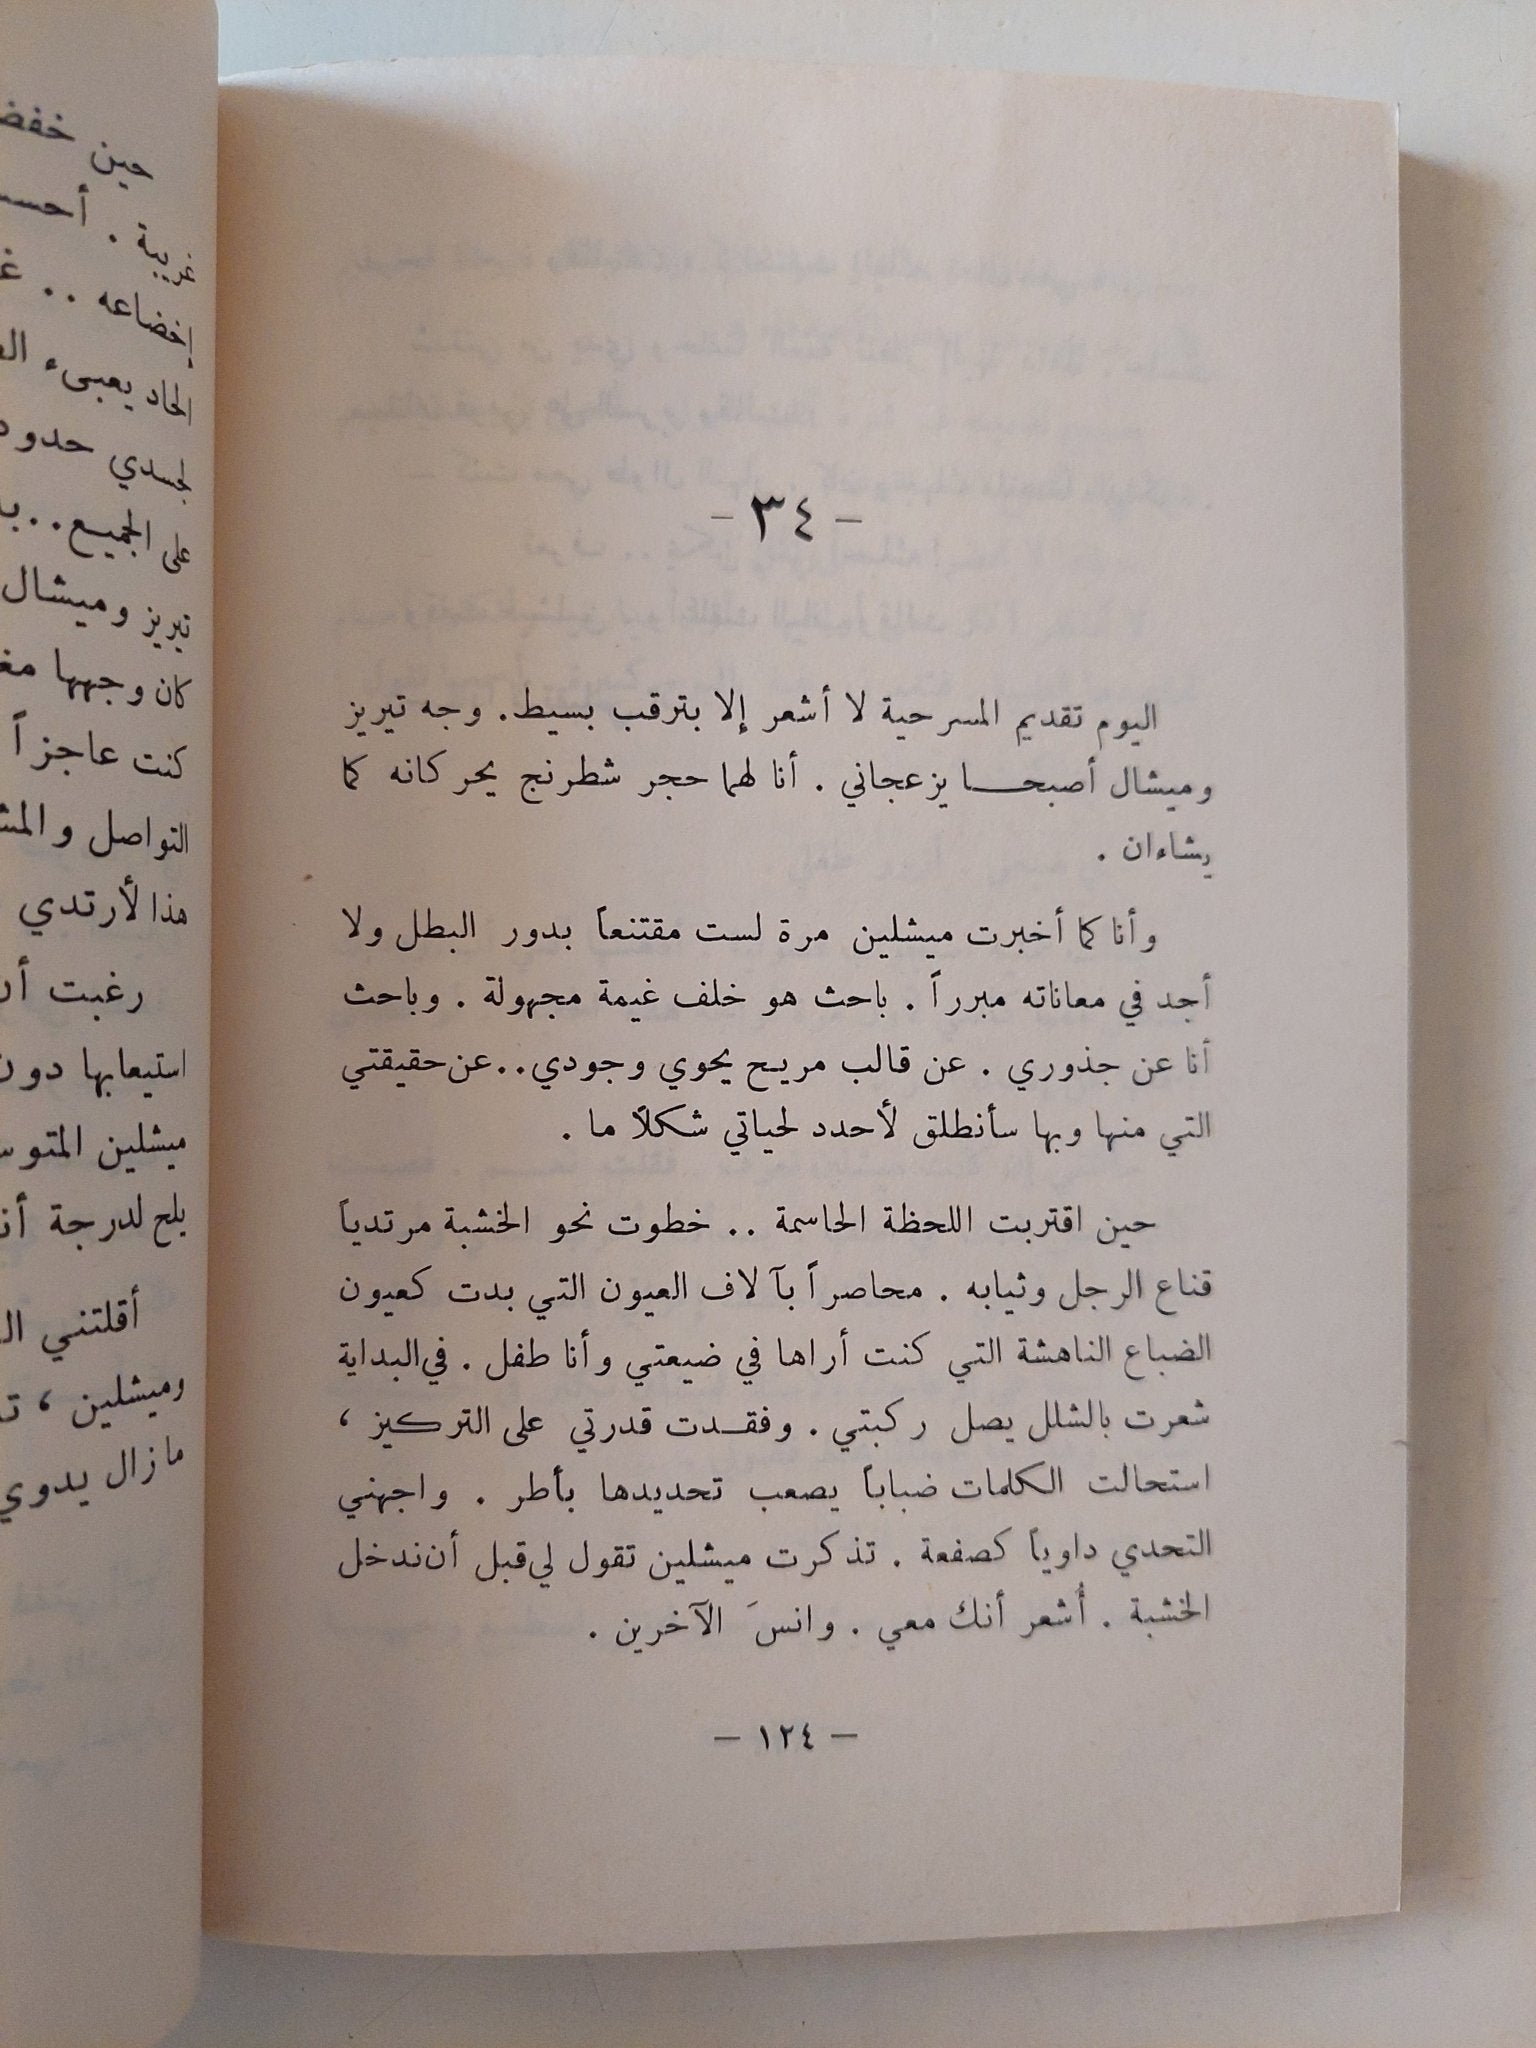 - ٣٤ -
اليوم تقديم المسرحية لا أشعر إلا بترقب بسيط. وجه تيريز
وميشال أصبحا يزعجاني . أنا لهما حجر شطرنج يحركانه كما
يشاءان .
وأنا كما أخبرت ميشلين مرة لست مقتنعاً بدور البطل ولا
أجد في معاناته مبرراً . باحث هو خلف غيمة مجهولة . وباحث
أنا عن جذوري . عن قالب مريح يحوي وجودي.. عن حقيقتي
التي منها وبها سأنطلق لأحدد لحياتي شكلاً ما .
حين اقتربت اللحظة الحاسمة .. خطوت نحو الخشبة مرتدياً
قناع الرجل وثيابه . محاصراً بآلاف العيون التي بدت كعيون
الضباع الناهشة التي كنت أراها في ضيعتي وأنا طفل . في البداية
شعرت بالشلل يصل ركبتي . وفقدت قدرتي على التركيز ،
استحالت الكلمات ضباباً يصعب تحديدها بأطر . واجهني
التحدي داوياً كصفعة . تذكرت ميشلين تقول لي قبل أن ندخل
الخشبة . أُشعر أنك معي . وانسَ الآخرين .
- ١٢٤ -
حين
غريبة . 
إخضاعه ..
الحاد يعبىء
لجسدي
على الجميع..
تيريز وميشال
كان وجهها
كنت عاجزاً
التواصل
هذا لأرتدي
رغبت
استيعابها دون
ميشلين
يلح لدرجة
أقلتني
وميشلين ،
مازال يدوي